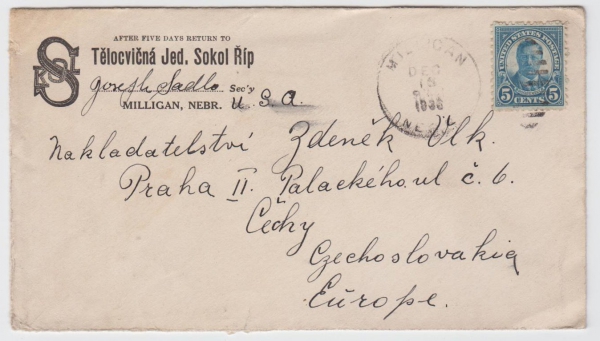 AFTER FIVE DAYS RETURN TO
Tělocvičná Jed. Sokol Říp
Joseph Sadlo Sec'y
MILLIGAN, NEBR. U.S.A.
MILLIGAN
DEC
15
NEBR
UNITED STATES POSTAGE
5 CENTS 5
Nakladatelství Zdeněk Vlk.
Praha II. Palackého ul č. 6.
Čechy
Czechoslovakia
Europe.